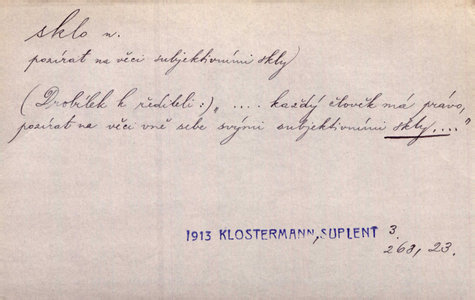 sklo n.
pozírat na věci subjektivními skly
(Drobílek k řediteli:) „.... každý člověk má právo,
pozírat na věci vně sebe svými subjektivními skly...."
1913 KLOSTERMANN, SUPLENT 3.
268, 23.